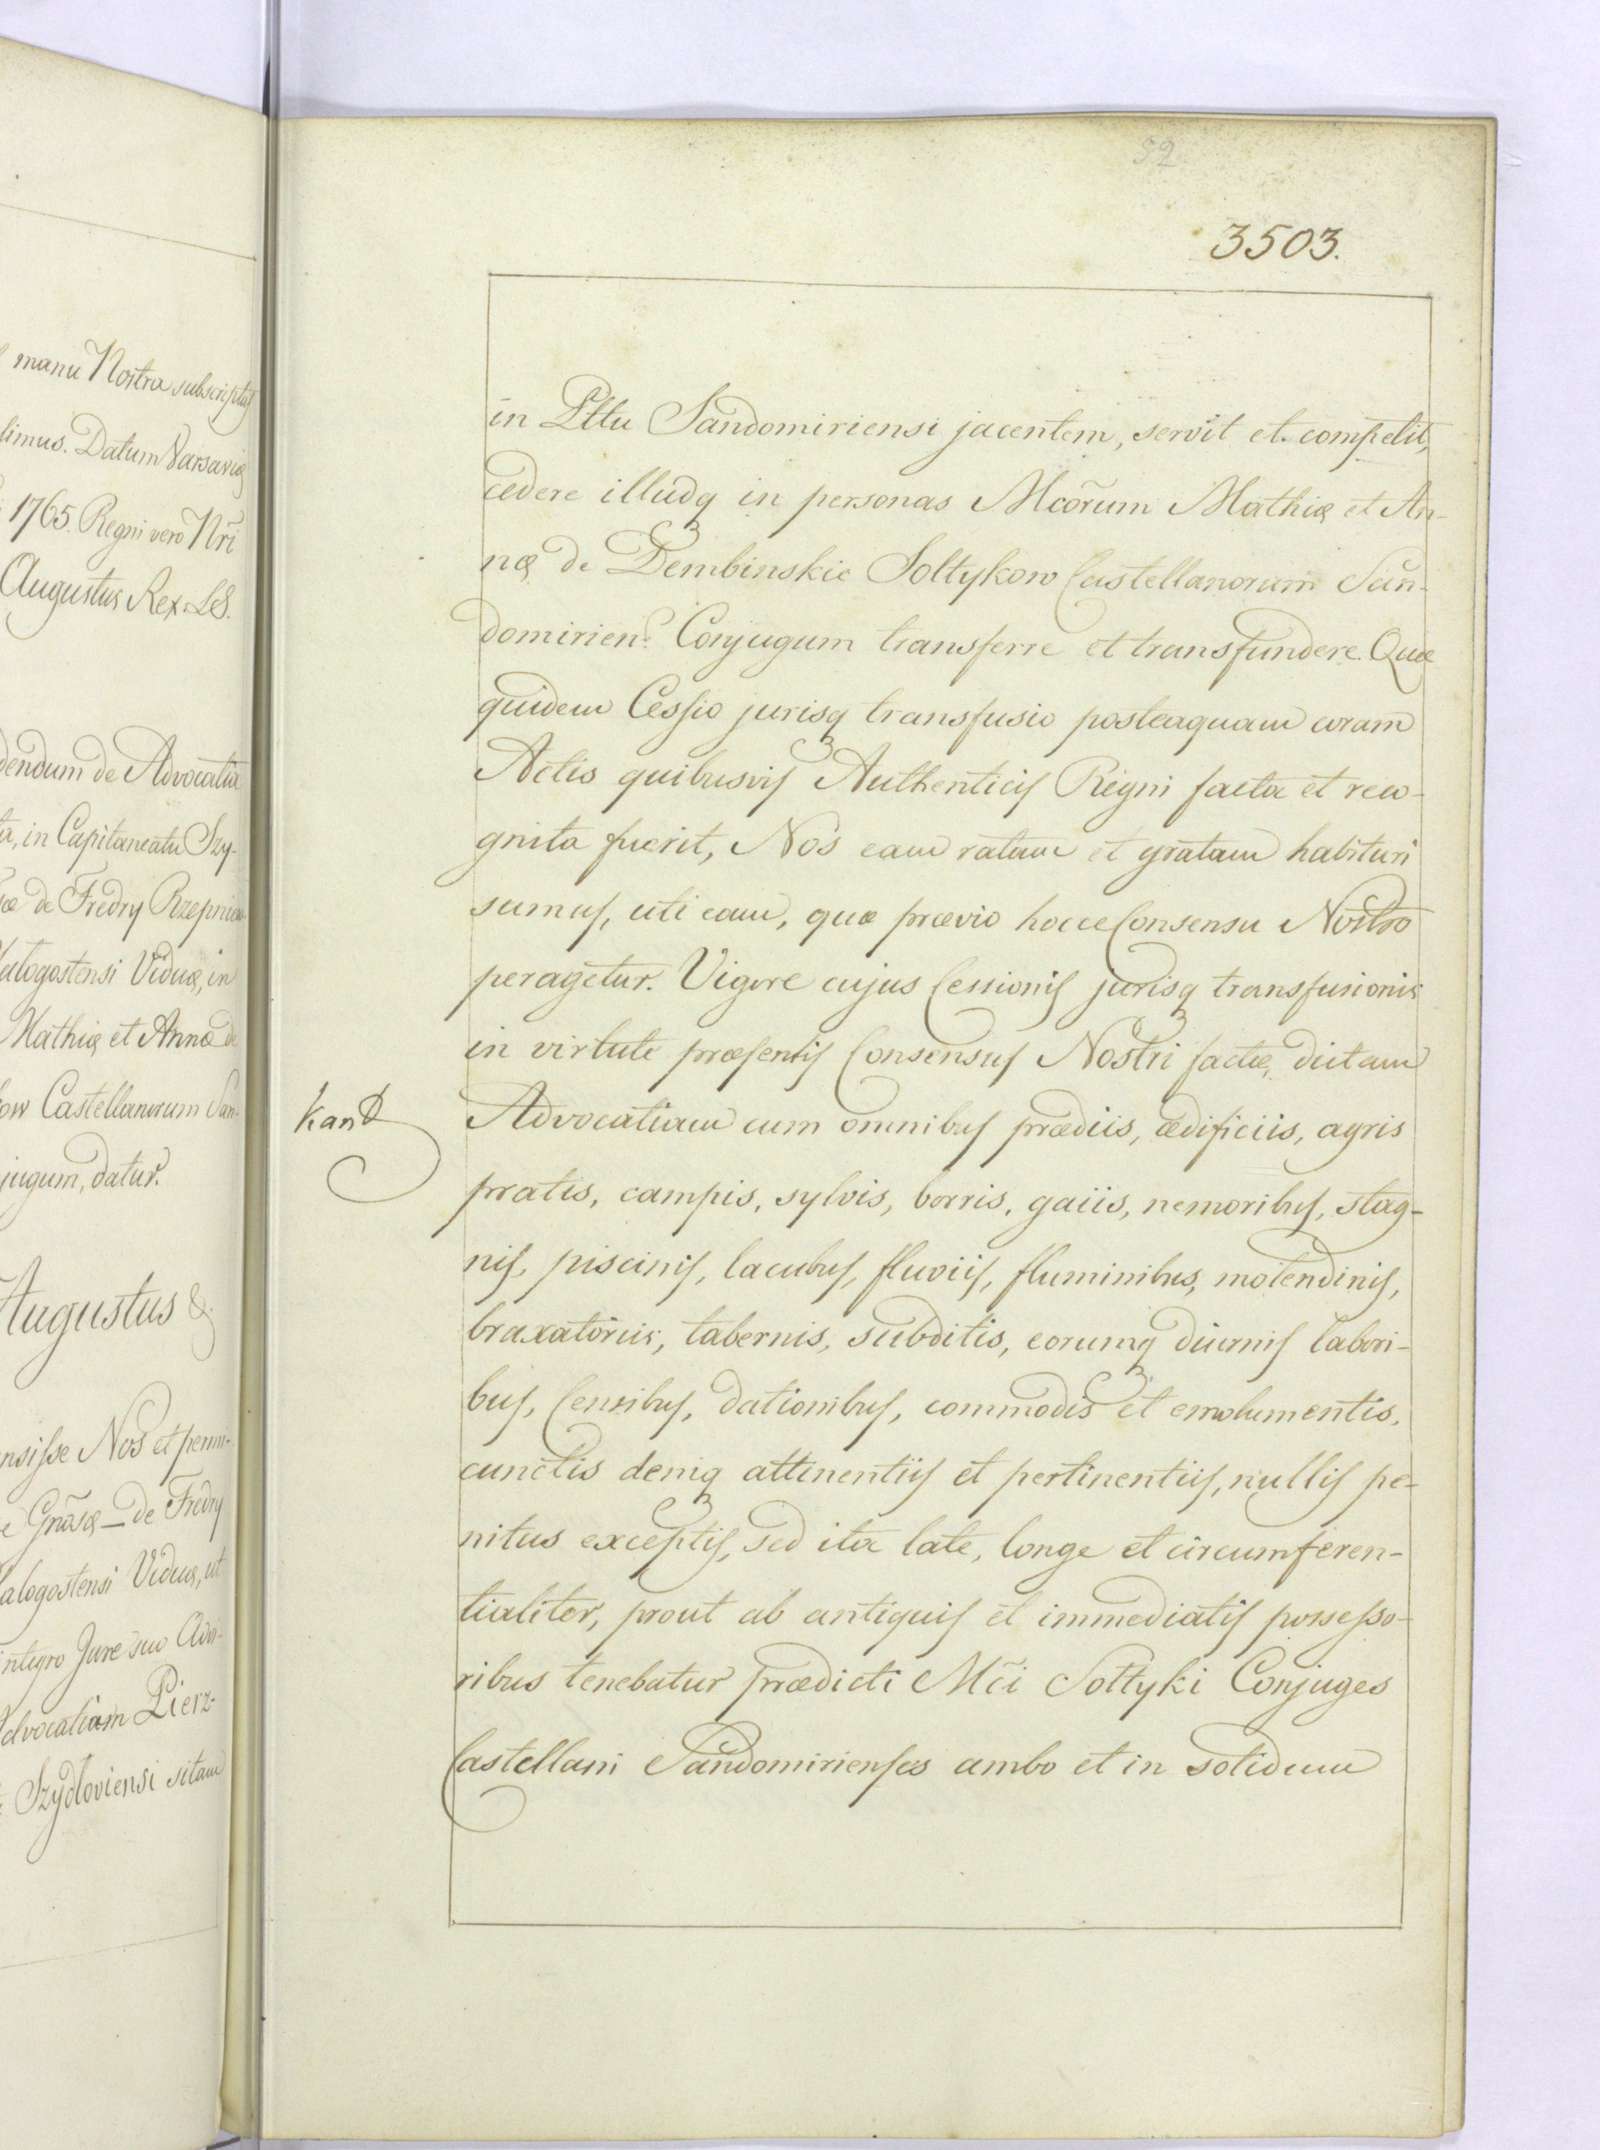 manu Nostra subscriptis
limus. Datum Varsaviæ
1765. Regni vero Nr̃i
Augustus Rex. LS.
dendum de Advocatia
ta, in Capitaneatu Szy-
de Fredry Rzepnica
alogostensi Viduæ, in
Mathiæ et Annæ de
ow Castellanorum San-
jugum, datur.
Augustus &
nsisse Nos et permi-
e Gnãsæ de Fredry
alogostensi Viduæ, ut
integro Jure suo Advo-
dvocatiam Pierz-
Szydłoviensi sitam
52
3503.
in Pltu Sandomiriensi jacentem, servit et competit,
cedere illudq in personas Mcõrum Mathiæ et An-
næ de Dembinskie Sołtykow Castellanorum San-
domirien. Conjugum transferre et transfundere. Quæ
quidem Cessio jurisq transfusio posteaquam coram
Actis quibusvis Authenticis Regni facta et reco-
gnita fuerit, Nos eam ratam et gratam habituri
sumus, uti eam, quæ prævio hocce Consensu Nostro
peragetur. Vigore cujus Cessionis jurisq transfusionis
in virtute præsentis Consensus Nostri factæ, dictam
Advocatiam cum omnibus prædiis, ædificiis, agris
pratis, campis, sylvis, borris, gaiis, nemoribus, stag-
nis, piscinis, lacubus, fluviis, fluminibus, molendinis,
braxatoriis, tabernis, subditis, eorumq diurnis labori-
bus, Censibus, dationibus, commodis et emolumentis,
cunctis deniq attinentiis et pertinentiis, nullis pe-
nitus exceptis, sed ita late, longe et circumferen-
tialiter, prout ab antiquis et immediatis possesso-
ribus tenebatur prædicti Mc̃i Sołtyki Conjuges
Castellani Sandomirienses ambo et in solidum